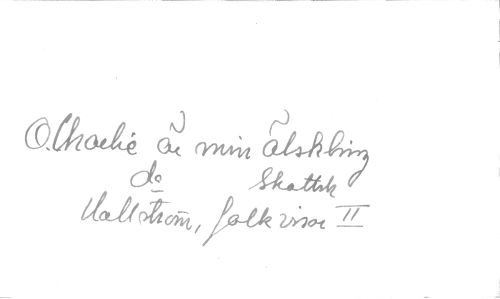 O. Charlie är min älskling
do Skottsk
Hallström, folkvisor II